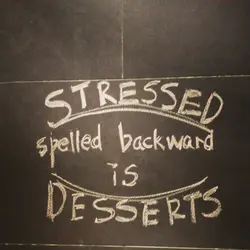 STRESSED
spelled backward
is
DESSERTS